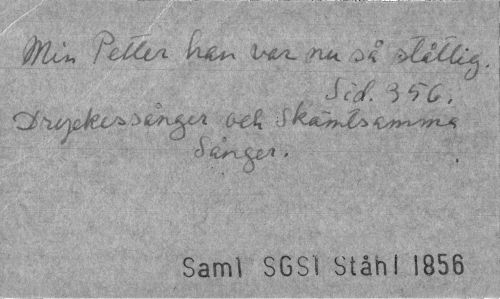 Min Petter han var nu så ståttlig.
Sid. 356.
Dryckessånger och Skämtsamma
Sånger.
Saml SGS1 Ståhl 1856